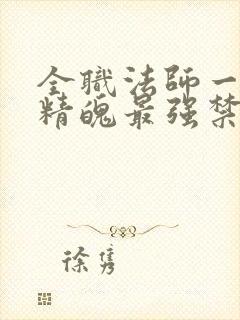 全職法師一
精魄最强禁
徐隽